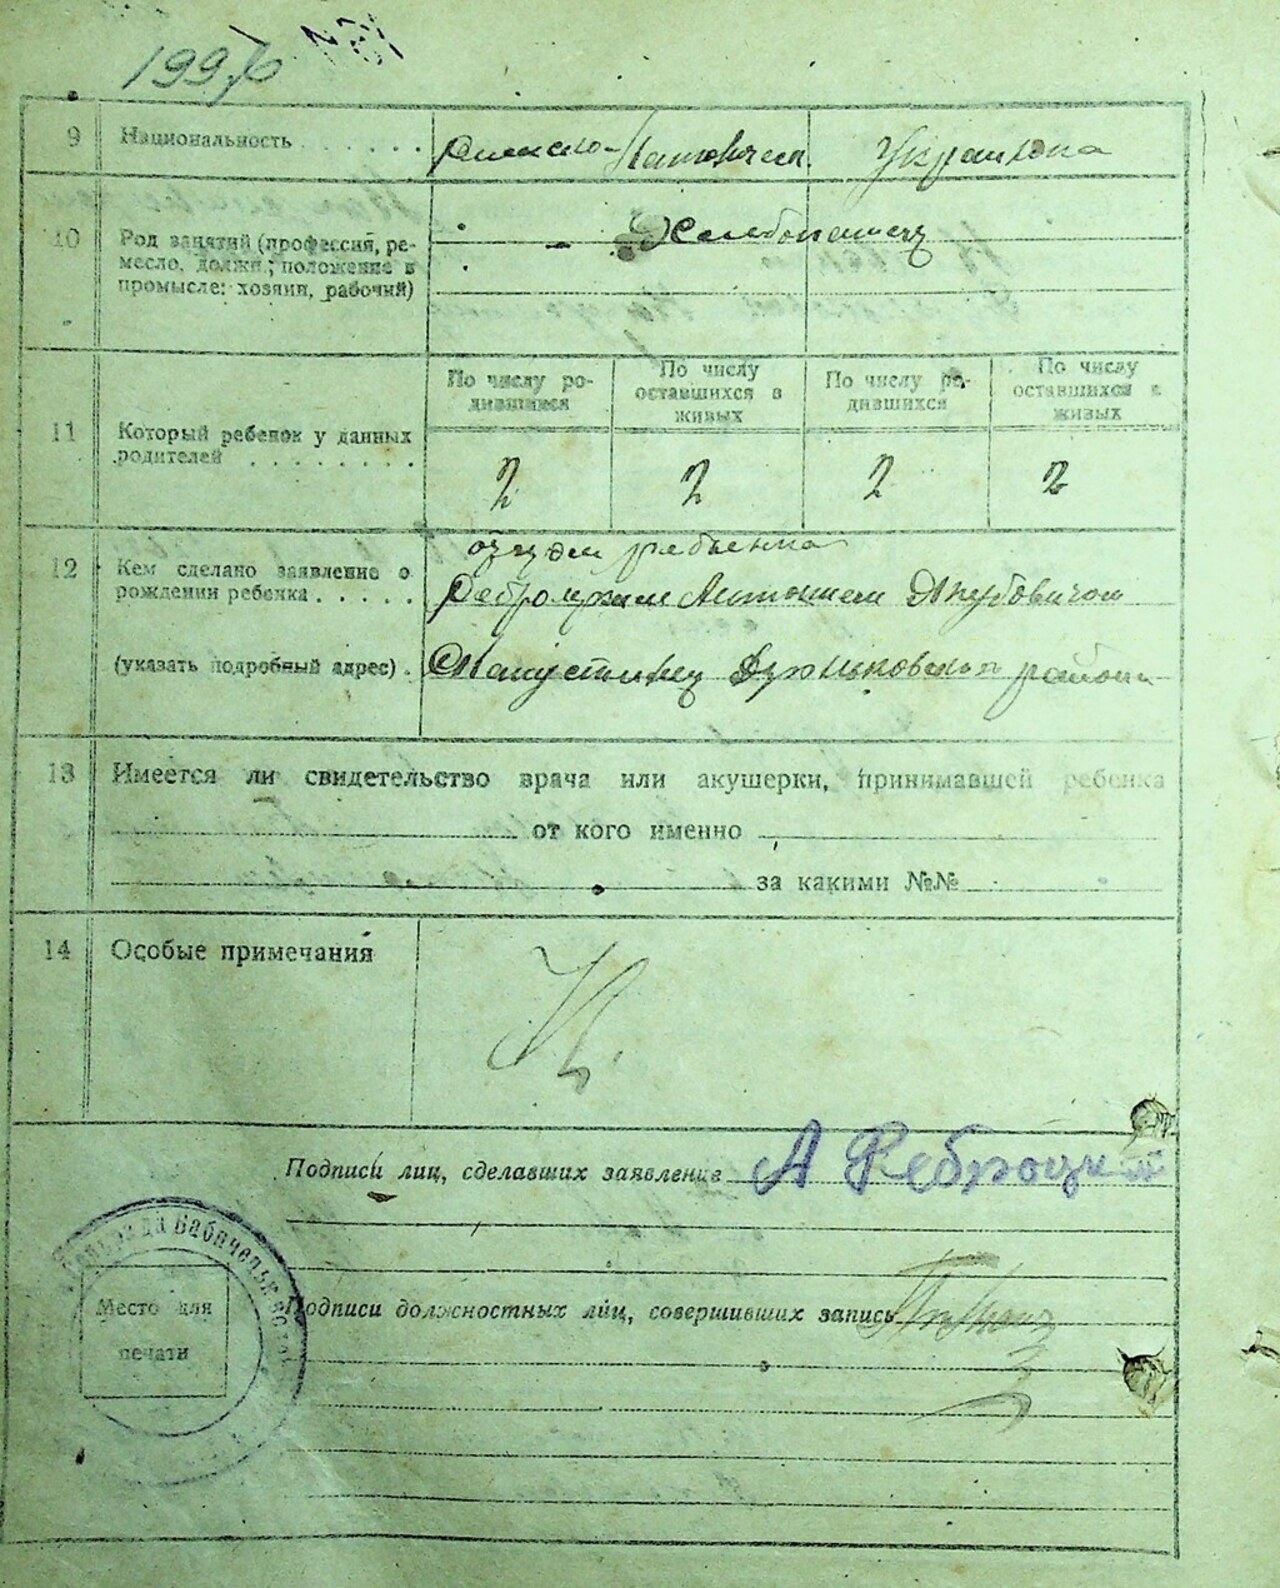 199
9 Национальность
Украинка
10 Род занятий (профессия, ре-
месло, должн.; положение в
промысле: хозяин, рабочий)
Хлебопашец
11 Который ребенок у данных
родителей
По числу ро-
дившихся
По числу
оставшихся в
живых
По числу ро-
дившихся
По числу
оставшихся в
живых
2 2 2 2
12 Кем сделано заявление о
рождении ребенка
(указать подробный адрес).
ребенка
Антонием
района
13 Имеется ли свидетельство врача или акушерки, принимавшей ребенка
от кого именно
за какими №№
14 Особые примечания
Подписи лиц, сделавших заявление А Реброцкий
Место для
печати
Подписи должностных лиц, совершивших запись